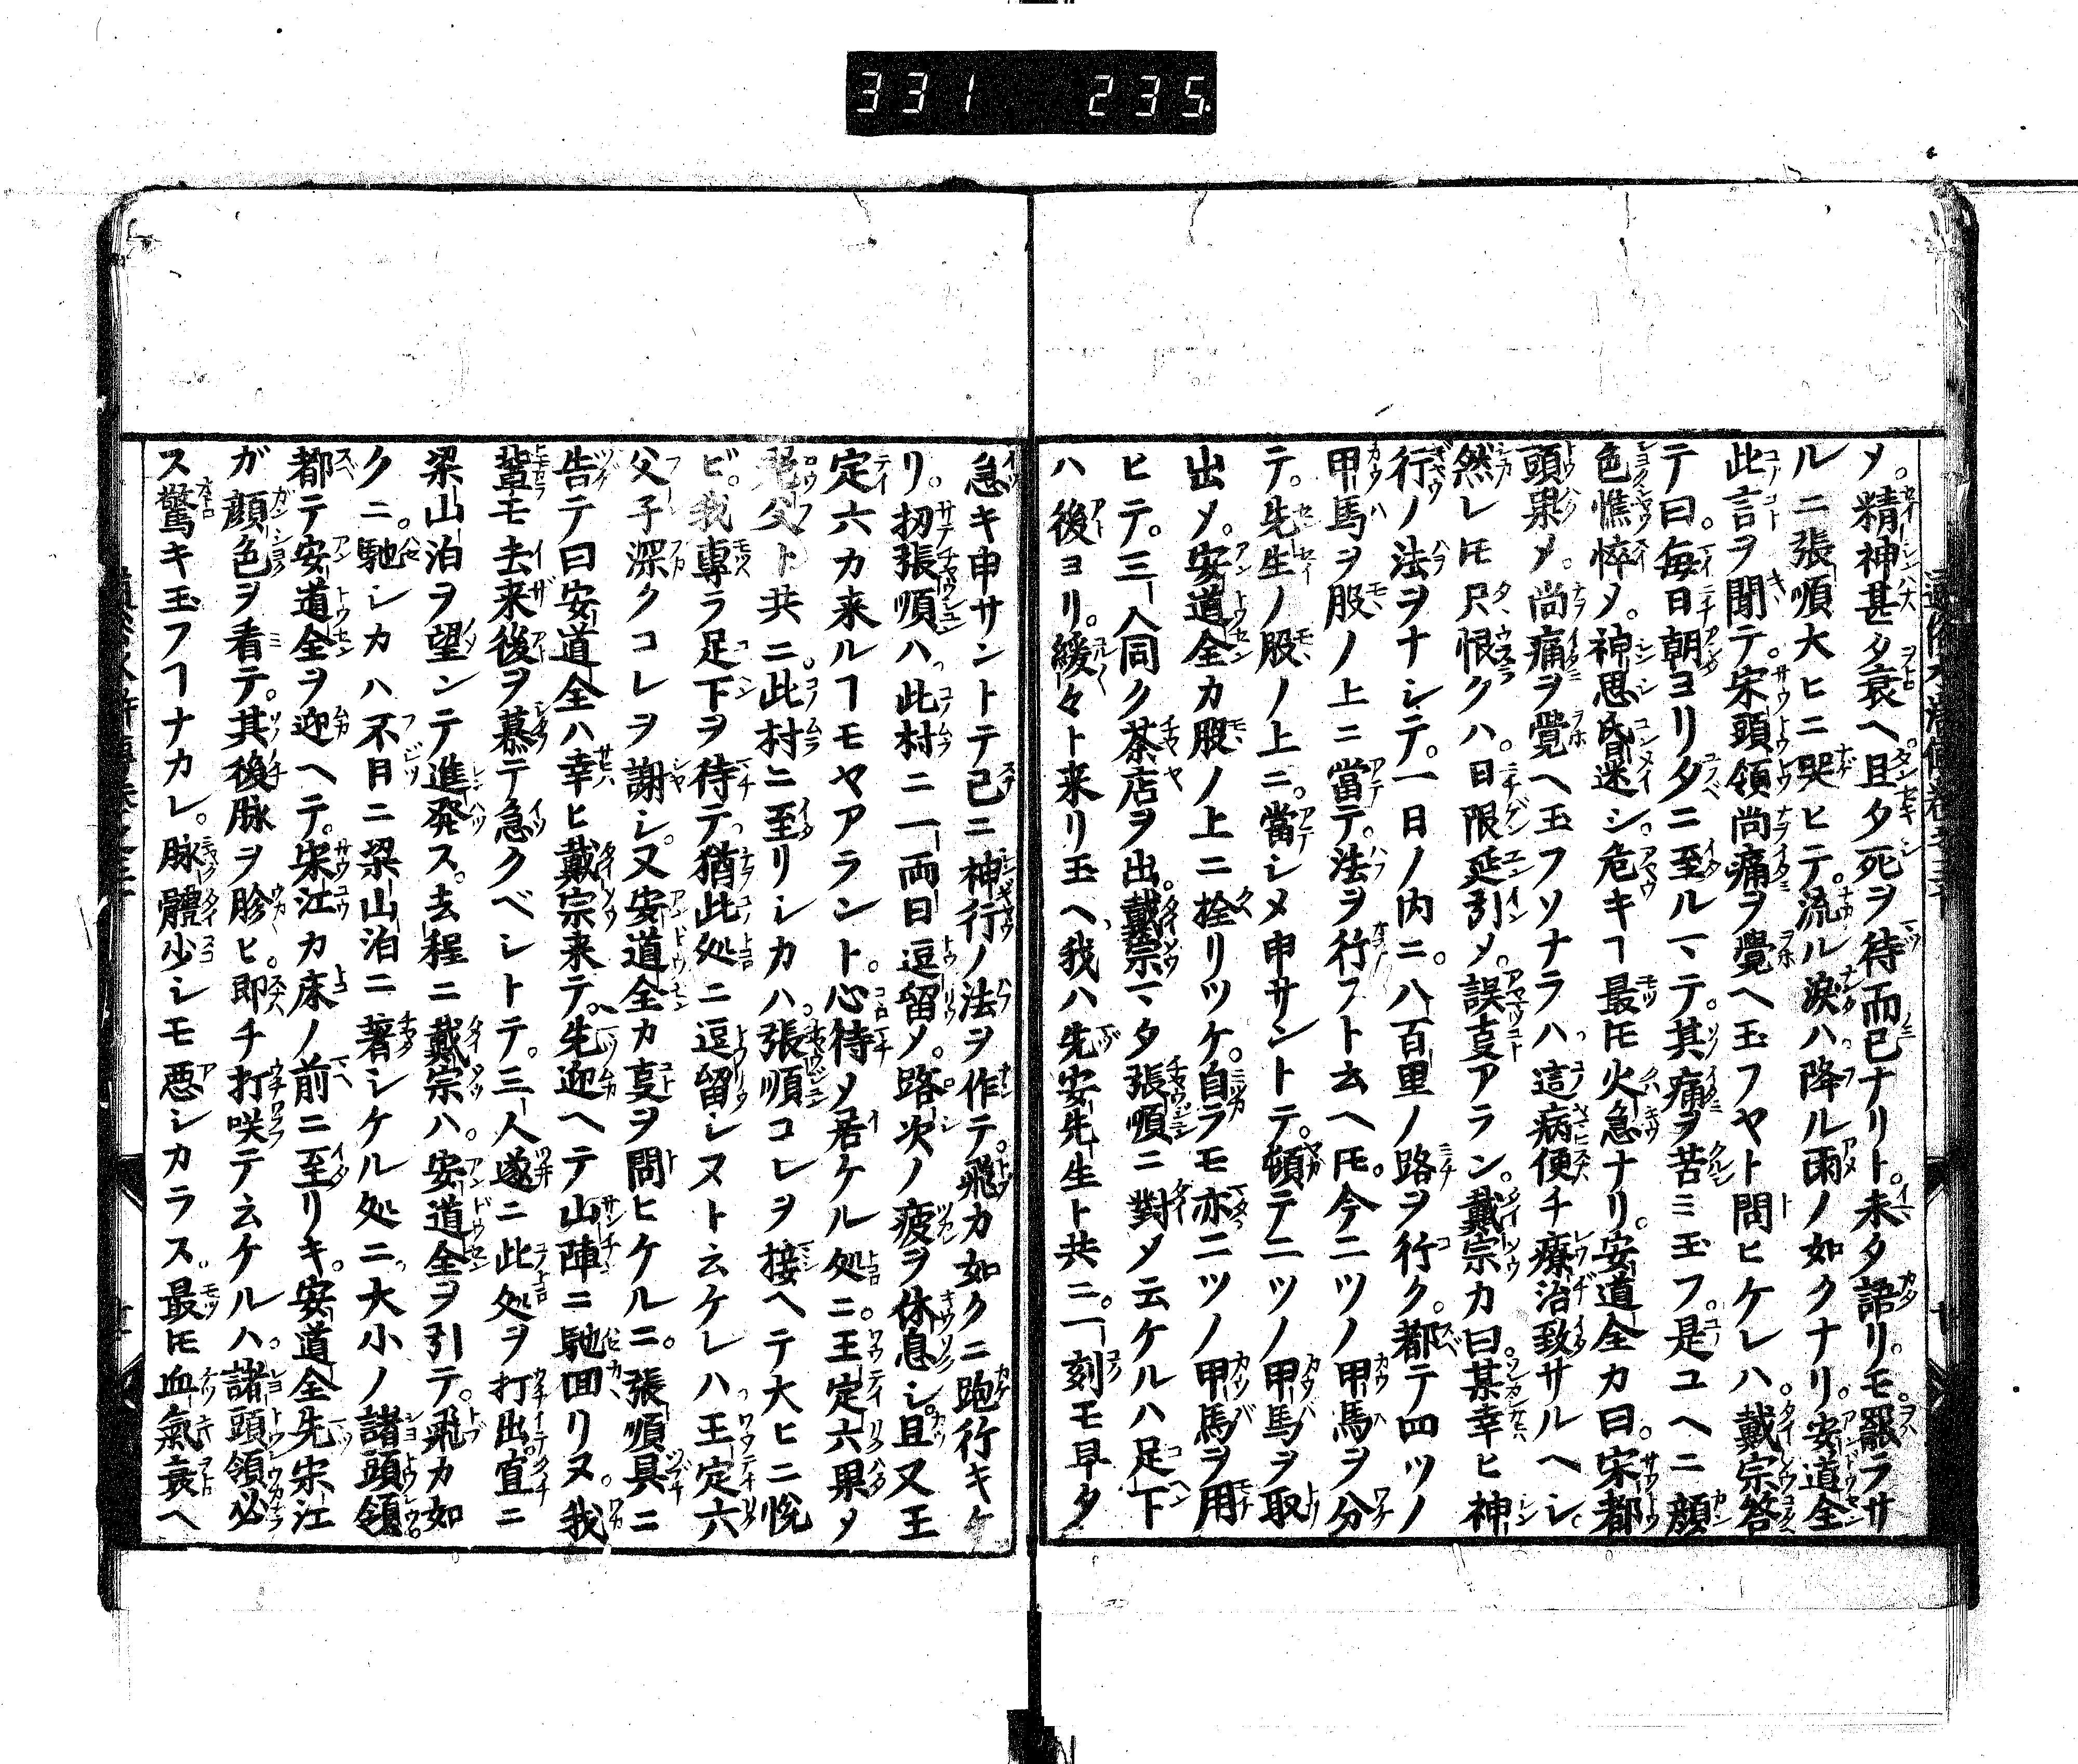 331 235.
メ。精神甚タ衰ヘ。且タ死ヲ待而已ナリト。未タ語リモ罷ラサ
ルニ張順大ヒニ哭ヒテ。流ル涙ハ降ル雨ノ如クナリ。安道全
此言ヲ聞テ。宋頭領尚痛ヲ覺ヘ玉フヤト問ヒケレハ。戴宗答
テ曰。毎日朝ヨリ夕ニ至ルマテ。其痛ヲ苦ミ玉フ。是ユヘニ顔
色憔悴メ。神思昏迷シ。危キヿ最モ火急ナリ。安道全カ曰。宋都
頭果メ。尚痛ヲ覺ヘ玉フソナラハ這病便チ療治致サルヘシ
然レ𪜈只恨クハ。日限延引メ。誤叓アラン。戴宗カ曰。某幸ヒ神
行ノ法ヲナシテ。一日ノ内ニ。八百里ノ路ヲ行ク。都テ四ツノ
甲馬ヲ股ノ上ニ當テ。法ヲ行フト云ヘ𪜈。今二ツノ甲馬ヲ分
テ。先生ノ股ノ上ニ。當シメ申サントテ。頓テ二ツノ甲馬ヲ取
出メ。安道全カ股ノ上ニ拴リツケ。自ラモ亦二ツノ甲馬ヲ用
ヒテ。三人同ク茶店ヲ出。戴宗マタ張順ニ對メ云ケルハ足下
ハ後ヨリ。緩々ト来リ玉ヘ。我ハ先安先生ト共ニ。一刻モ早タ
急キ申サントテ已ニ神行ノ法ヲ作テ。飛カ如クニ跑行キケ
リ。扨張順ハ此村ニ一両日逗留メ。路次ノ疲ヲ休息シ。且又王
定六カ来ルヿモヤアラント。心待メ居ケル処ニ。王定六果メ
老父ト共ニ。此村ニ至リシカハ。張順コレヲ接ヘテ大ヒニ悦
ビ。我專ラ足下ヲ待テ猶此処ニ逗留シヌト云ケレハ王定六
父子深クコレヲ謝シ。又安道全カ叓ヲ問ヒケルニ。張順具ニ
告テ曰安道全ハ幸ヒ戴宗来テ。先迎ヘテ山陣ニ馳回リヌ。我
輩モ去来後ヲ慕テ急クベシトテ。三人遂ニ此処ヲ打出。直ニ
梁山泊ヲ望ンテ進発ス。去程ニ戴宗ハ。安道全ヲ引テ。飛カ如
クニ。馳シカハ不日ニ梁山泊ニ著シケル処ニ大小ノ諸頭領。
都テ安道全ヲ迎ヘテ。宋江カ床ノ前ニ至リキ。安道全先宋江
ガ顔色ヲ看テ。其後脉ヲ胗ヒ。即チ打咲テ云ケルハ。諸頭領必
ス驚キ玉フヿナカレ。脉體少シモ悪シカラス。最モ血氣衰ヘ